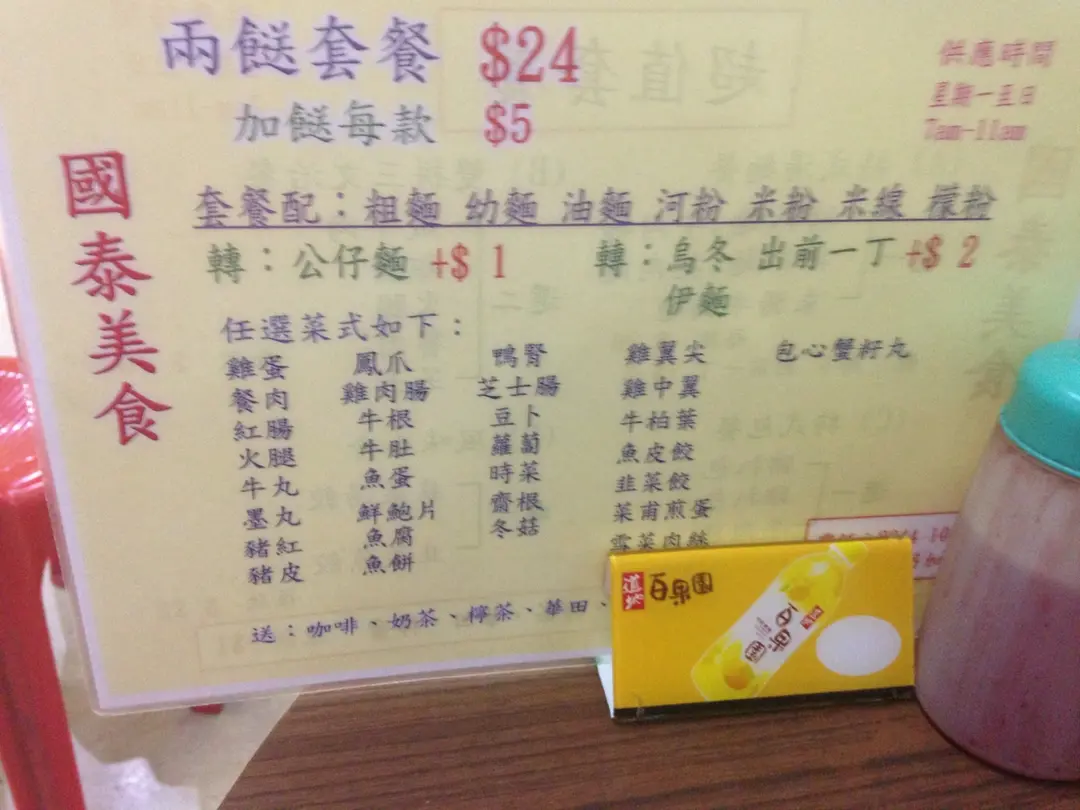 兩餸套餐 $24
加餸每款 $5
供應時間
星期一至日
7am-11am
國泰美食
套餐配：粗麵 幼麵 油麵 河粉 米粉 米線 檬粉
轉：公仔麵 +$ 1
轉：烏冬 出前一丁 +$ 2
伊麵
任選菜式如下：
雞蛋
餐肉
紅腸
火腿
牛丸
墨丸
豬紅
豬皮
鳳爪
雞肉腸
牛根
牛肚
魚蛋
鮮鮑片
魚腐
魚餅
鴨腎
芝士腸
豆卜
蘿蔔
時菜
齋根
冬菇
雞翼尖
雞中翼
牛柏葉
魚皮餃
韭菜餃
菜甫煎蛋
雪菜肉絲
包心蟹籽丸
送：咖啡、奶茶、檸茶、華田、
道地 百果園
道地
百果園